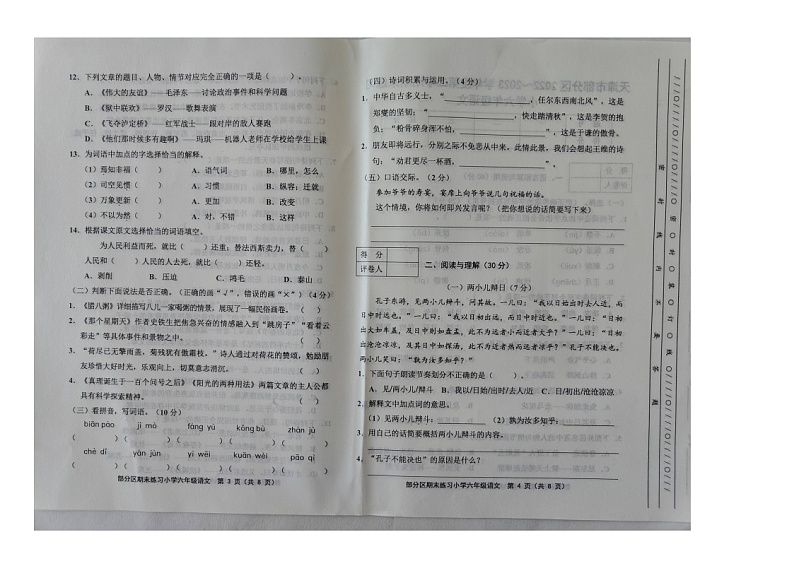 12. 下列文章的题目、人物、情节对应完全正确的一项是（　　）。
A.《伟大的友谊》——毛泽东——讨论政治事件和科学问题
B.《狱中联欢》——罗汉——歌舞表演
C.《飞夺泸定桥》——红军战士——跟对岸的敌人赛跑
D.《他们那时候多有趣啊》——玛琪——机器人老师在学校给学生上课
13. 为词语中加点的字选择恰当的解释。
（1）焉知非福（　　） A. 语气词 B. 哪里，怎么
（2）司空见惯（　　） A. 习惯 B. 纵容；迁就
（3）万象更新（　　） A. 更加 B. 改变
（4）不以为然（　　） A. 对，不错 B. 这样
14. 根据课文原文选择恰当的词语填空。
为人民利益而死，就比（　　）还重；替法西斯卖力，替（　　）
人民和（　　）人民的人去死，就比（　　）还轻。
A. 剥削 B. 压迫 C. 鸿毛 D. 泰山
（二）判断下面说法是否正确。（正确的画“√”，错误的画“×”）（4分）
1.《腊八粥》详细描写八儿一家喝粥的情景，展现了一幅民俗画卷。（　　）
2.《那个星期天》作者史铁生把焦急兴奋的情感融入到“跳房子”“看着云
彩走”等具体事件和景物之中。（　　）
3.“荷尽已无擎雨盖，菊残犹有傲霜枝。”诗人通过对荷花的赞颂，勉励朋
友珍惜大好时光，乐观向上，切莫意志消沉。（　　）
4.《真理诞生于一百个问号之后》《阳光的两种用法》两篇文章的主人公都
具有科学探索精神。（　　）
（三）看拼音，写词语。（10分）
biān pào jì mò fáng yù kǒng bù zhàn jù
（　　）（　　）（　　）（　　）（　　）
chè dǐ yān jùn yì wèi kuān wēn pāo qì
（　　）（　　）（　　）（　　）（　　）
部分区期末练习小学六年级语文 第 3 页（共 8 页）
（四）诗词积累与运用。（4分）
1. 中华自古多义士，“＿＿＿＿＿＿，任尔东西南北风”，这是
郑燮的坚韧；“＿＿＿＿＿＿，快走踏清秋”，这是李贺的抱
负；“粉骨碎身浑不怕，＿＿＿＿＿＿”，这是于谦的傲骨。
2. 朋友即将远行，分别之际不免悲从中来。此情此景，我们会想起王维的诗
句：“劝君更尽一杯酒，＿＿＿＿＿＿。”
（五）口语交际。（2分）
参加爷爷的寿宴，宴席上向爷爷说几句祝福的话。
这个情境，你将如何即兴发言呢？（把你想说的话简要写下来）
得 分
评卷人
二、阅读与理解（30分）
（一）两小儿辩日（7分）
孔子东游，见两小儿辩斗，问其故。一儿曰：“我以日始出时去人近，而
日中时远也。”一儿曰：“我以日初出远，而日中时近也。”一儿曰：“日初
出大如车盖，及日中则如盘盂，此不为远者小而近者大乎？”一儿曰：“日初
出沧沧凉凉，及其日中如探汤，此不为近者热而远者凉乎？”孔子不能决也。
两小儿笑曰：“孰为汝多知乎？”
1. 下面句子朗读节奏划分不正确的是（　　）。
A. 见/两小儿/辩斗 B. 我以/日始/出时/去人/近 C. 日/初出/沧沧凉凉
2. 解释文中加点词的意思。
（1）见两小儿辩斗：＿＿＿＿ （2）孰为汝多知乎：＿＿＿＿
3. 用自己的话简要概括两小儿辩斗的内容。
4.“孔子不能决也”的原因是什么？
部分区期末练习小学六年级语文 第 4 页（共 8 页）
密 封 线 内 不 要 答 题
密 封 装 订 线